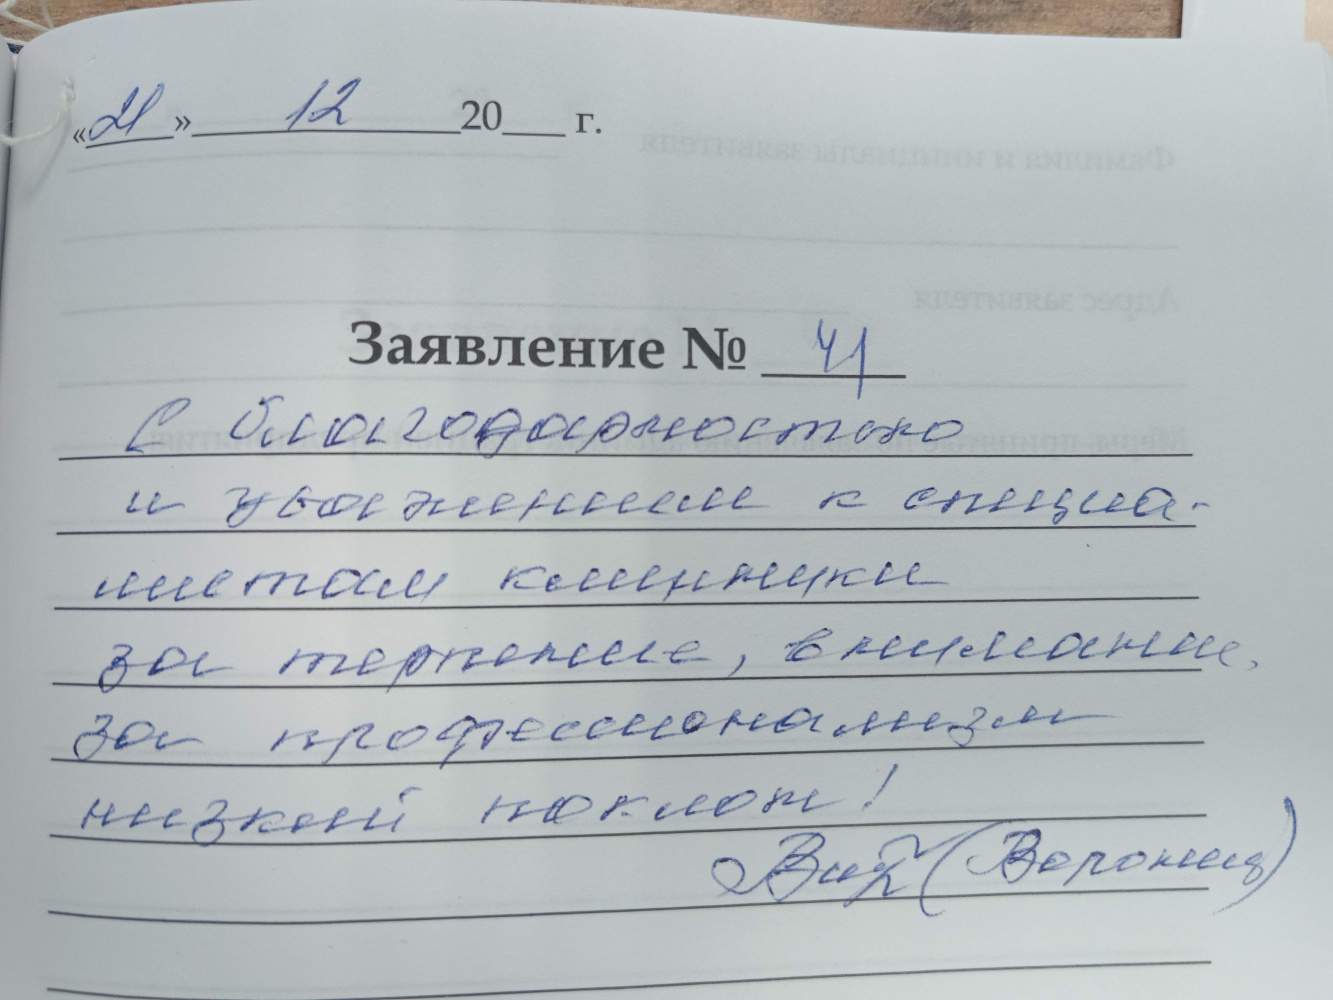 «21» 12 20___ г.
Заявление № 41
С благодарностью
и уважением к специа-
листам клиники
за терпение, внимание,
за профессионализм
низкий поклон!
(Воронин)